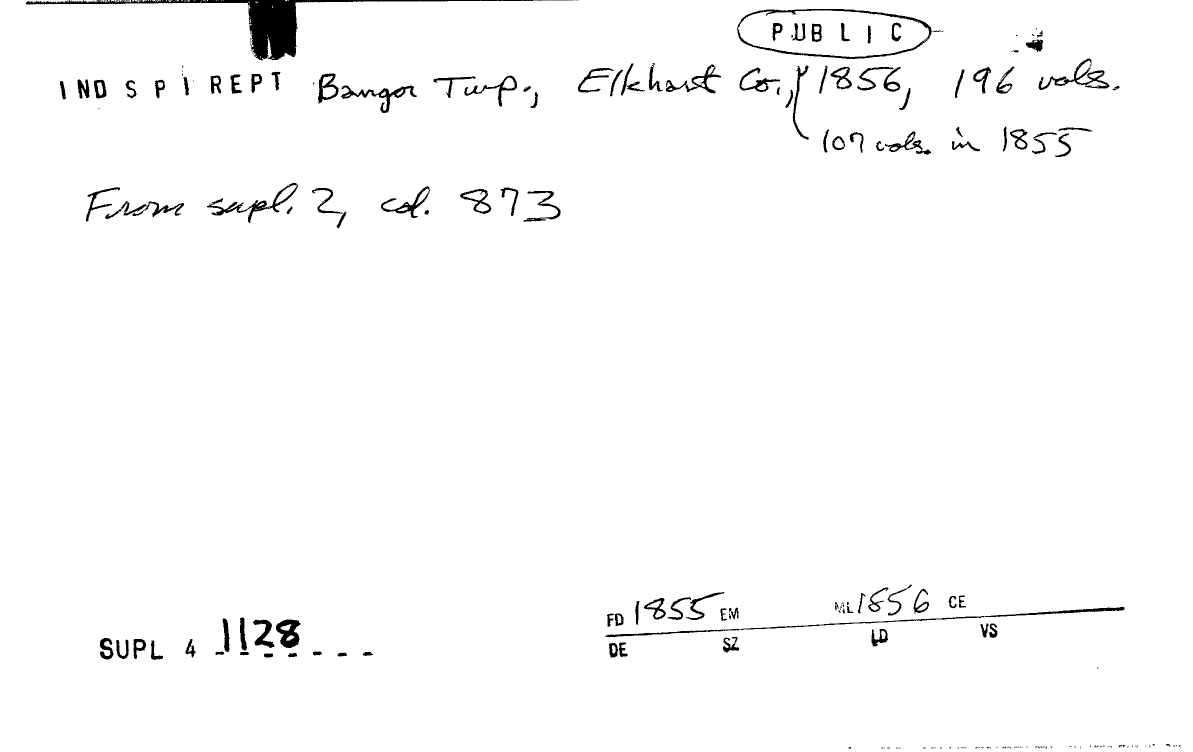 PUBLIC
INDSPIREPT Bangor Twp., Elkhart Co., 1856, 196 vols.
107 vols. in 1855
From supl. 2, col. 873
FD 1855 EM ML 1856 CE
SUPL 4 1128
DE SZ LD VS